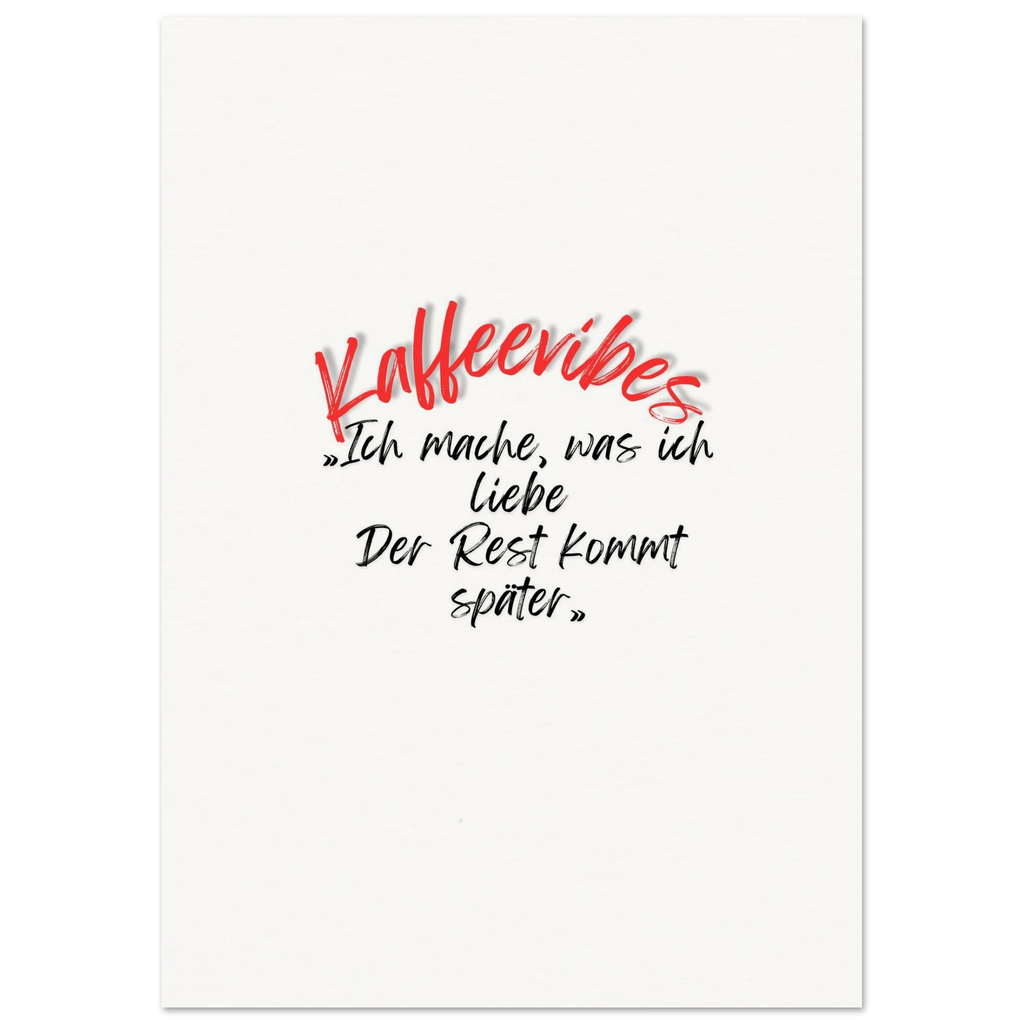 Kaffeevibes
„Ich mache, was ich
liebe
Der Rest kommt
später„